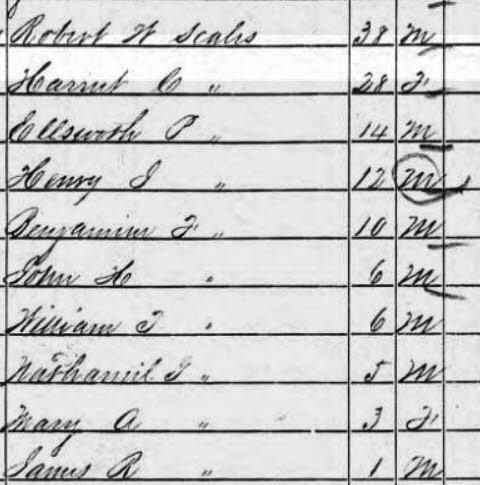 Robert W Scales 38 M
Harriet C " 28 F
Ellsworth P " 14 M
Henry J " 12 M
Benjamin F " 10 M
John H " 6 M
William T " 6 M
Nathaniel G " 5 M
Mary A " 3 F
James R " 1 M